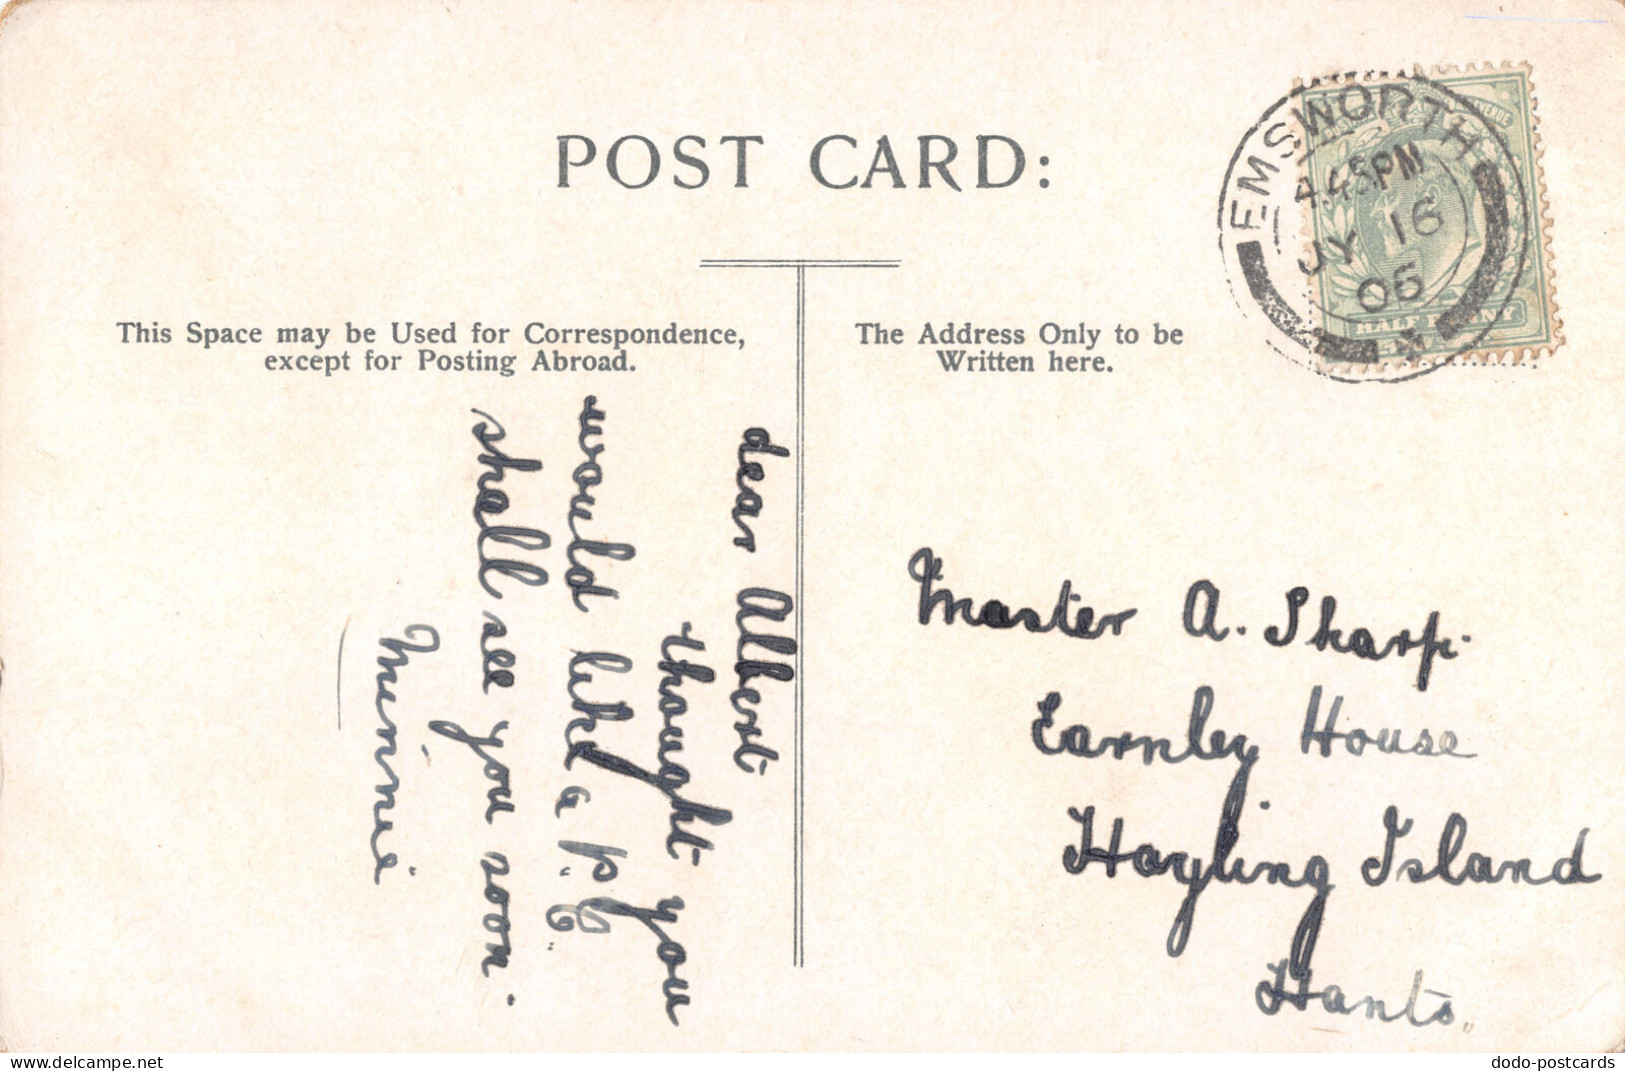 POST CARD:
EMSWORTH
4.45PM
JY 16
06
HALF PENNY
This Space may be Used for Correspondence,
except for Posting Abroad.
The Address Only to be
Written here.
dear Albert
thought you
would like a p. c.
shall see you soon
Minnie
Master A. Sharp.
Earnley House
Hayling Island
Hants
dodo-postcards